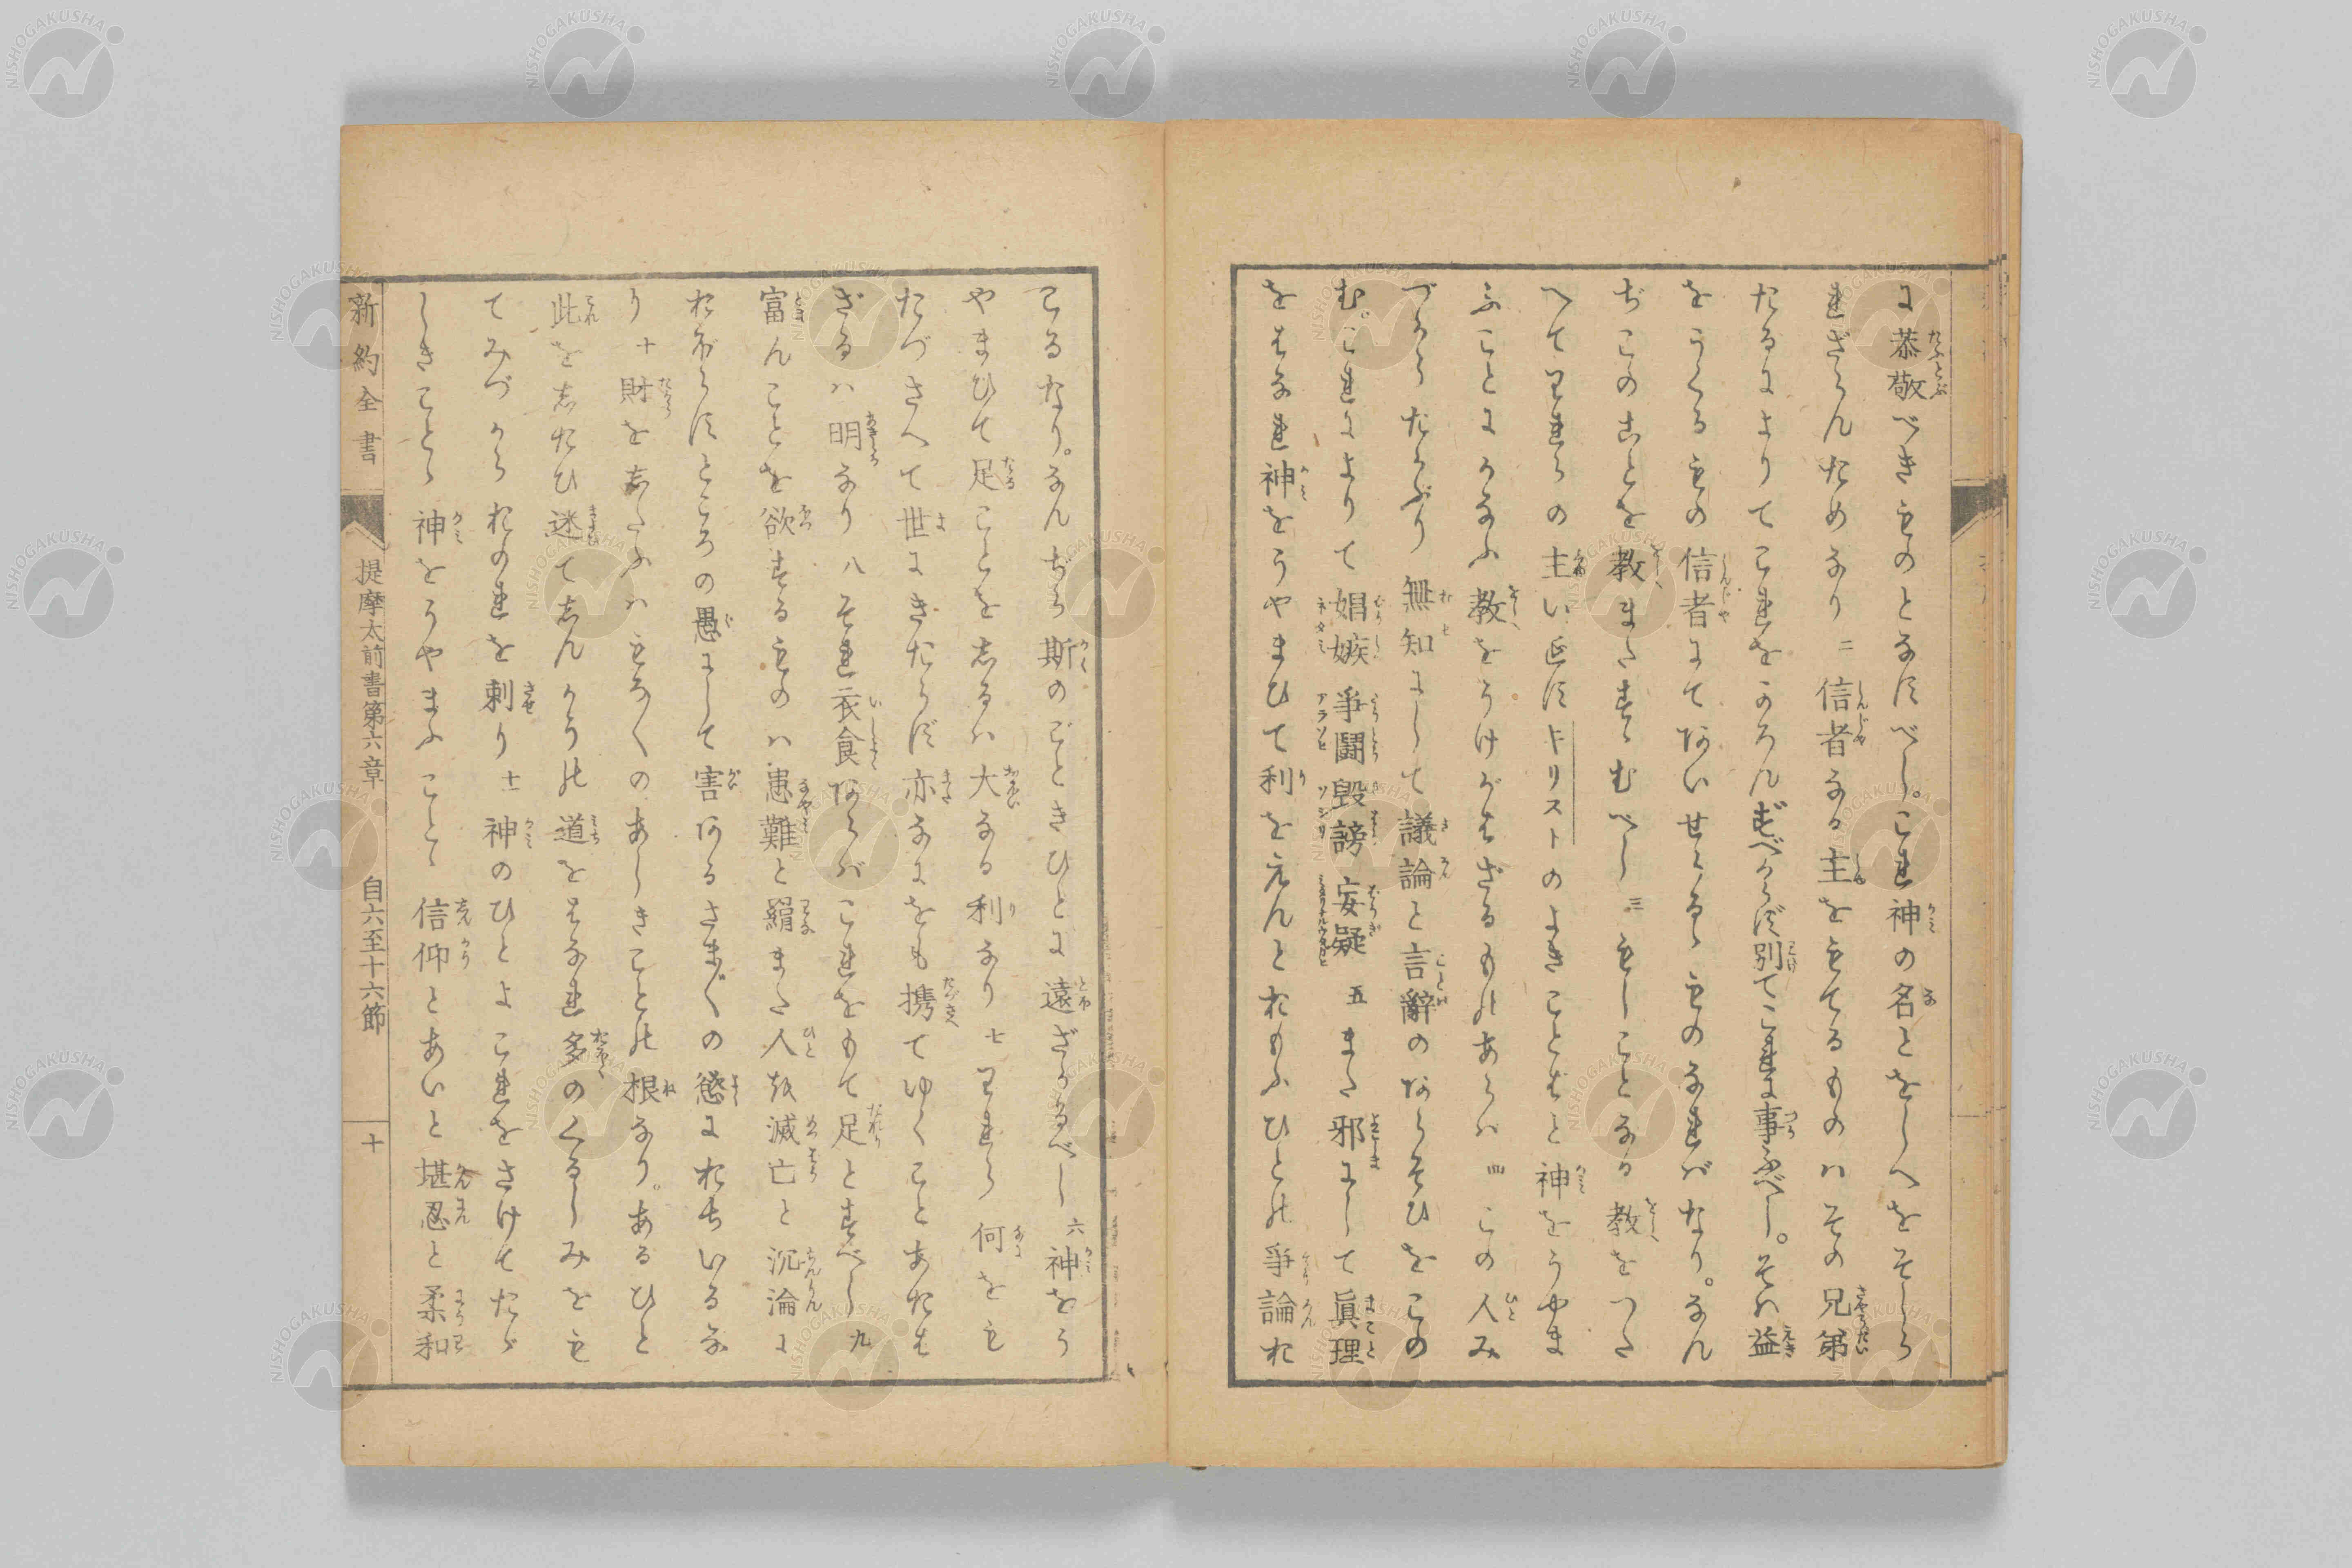 に恭敬べきものとなすべし。これ神の名とをしへをそしら
れざらんためなり 二 信者なる主をもてるものハその兄弟
たるによりてこれをかろんずべからず別てこれに事ふべし。そハ益
をうくるもの信者にてあいせらるゝものなればなり。なん
ぢこのことを教またすゝむべし 三 もしことなる教をつた
へてわれらの主いエスキリストのよきことばと神をうやま
ふことにかなふ教をうけがはざるものあらハ 四 この人み
づからたかぶり無知にして議論と言辭のあらそひをこの
む。これによりて娼嫉爭鬪毀謗妄疑 五 また邪にして眞理
をはなれ神をうやまひて利をえんとおもふひとの爭論お
こるなり。なんぢら斯のごときひとに遠ざかるべし 六 神をう
やまひて足ことをしるハ大なる利なり 七 われら何をも
たづさへて世にきたらず亦なにをも携てゆくことあたは
ざるハ明なり 八 それ衣食あらばこれをもて足とすべし 九
富んことを欲するものハ患難と絹また人を滅亡と沉淪に
おぼらすところの愚にして害あるさまざまの慾におちいるな
り 十 財をしたふハもろ〱のあしきことの根なり。あるひと
此をしたひ迷てしんかうの道をはなれ多のくるしみをも
てみづからおのれを刺り 十一 神のひとよこれをさけてたゞ
しきことゝ神をうやまふことゝ信仰とあいと堪忍と柔和
新約全書
提摩太前書第六章
自六至十六節
十